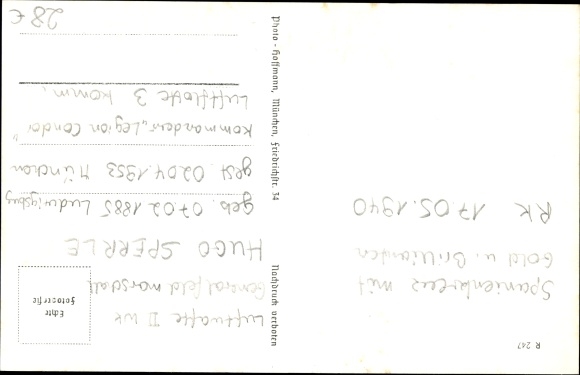 R 247
Spanienkreuz mit
Gold u. Brillianten
RK 17.05.1940
Nachdruck verboten
Photo-Hoffmann, München, Friedrichstr. 34
Echte
Fotografie
Luftwaffe II WK
Generalfeldmarschall
HUGO SPERRLE
geb. 07.02.1885 Ludwigsburg
gest. 02.04.1953 München
Kommandeur "Legion Condor"
Luftflotte 3 Komm.
28 €